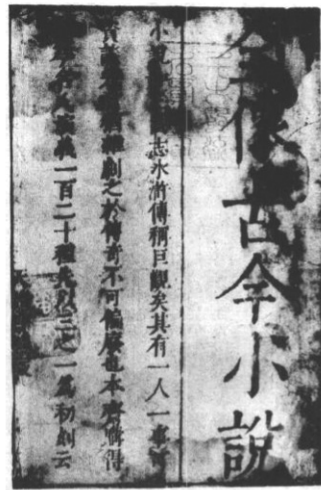 全像古今小說
小說志水滸傳稱巨觀矣其有一人一事
雜劇之於傳奇不可偏廢也本齋購得
人演義一百二十種先以三之一為初刻云